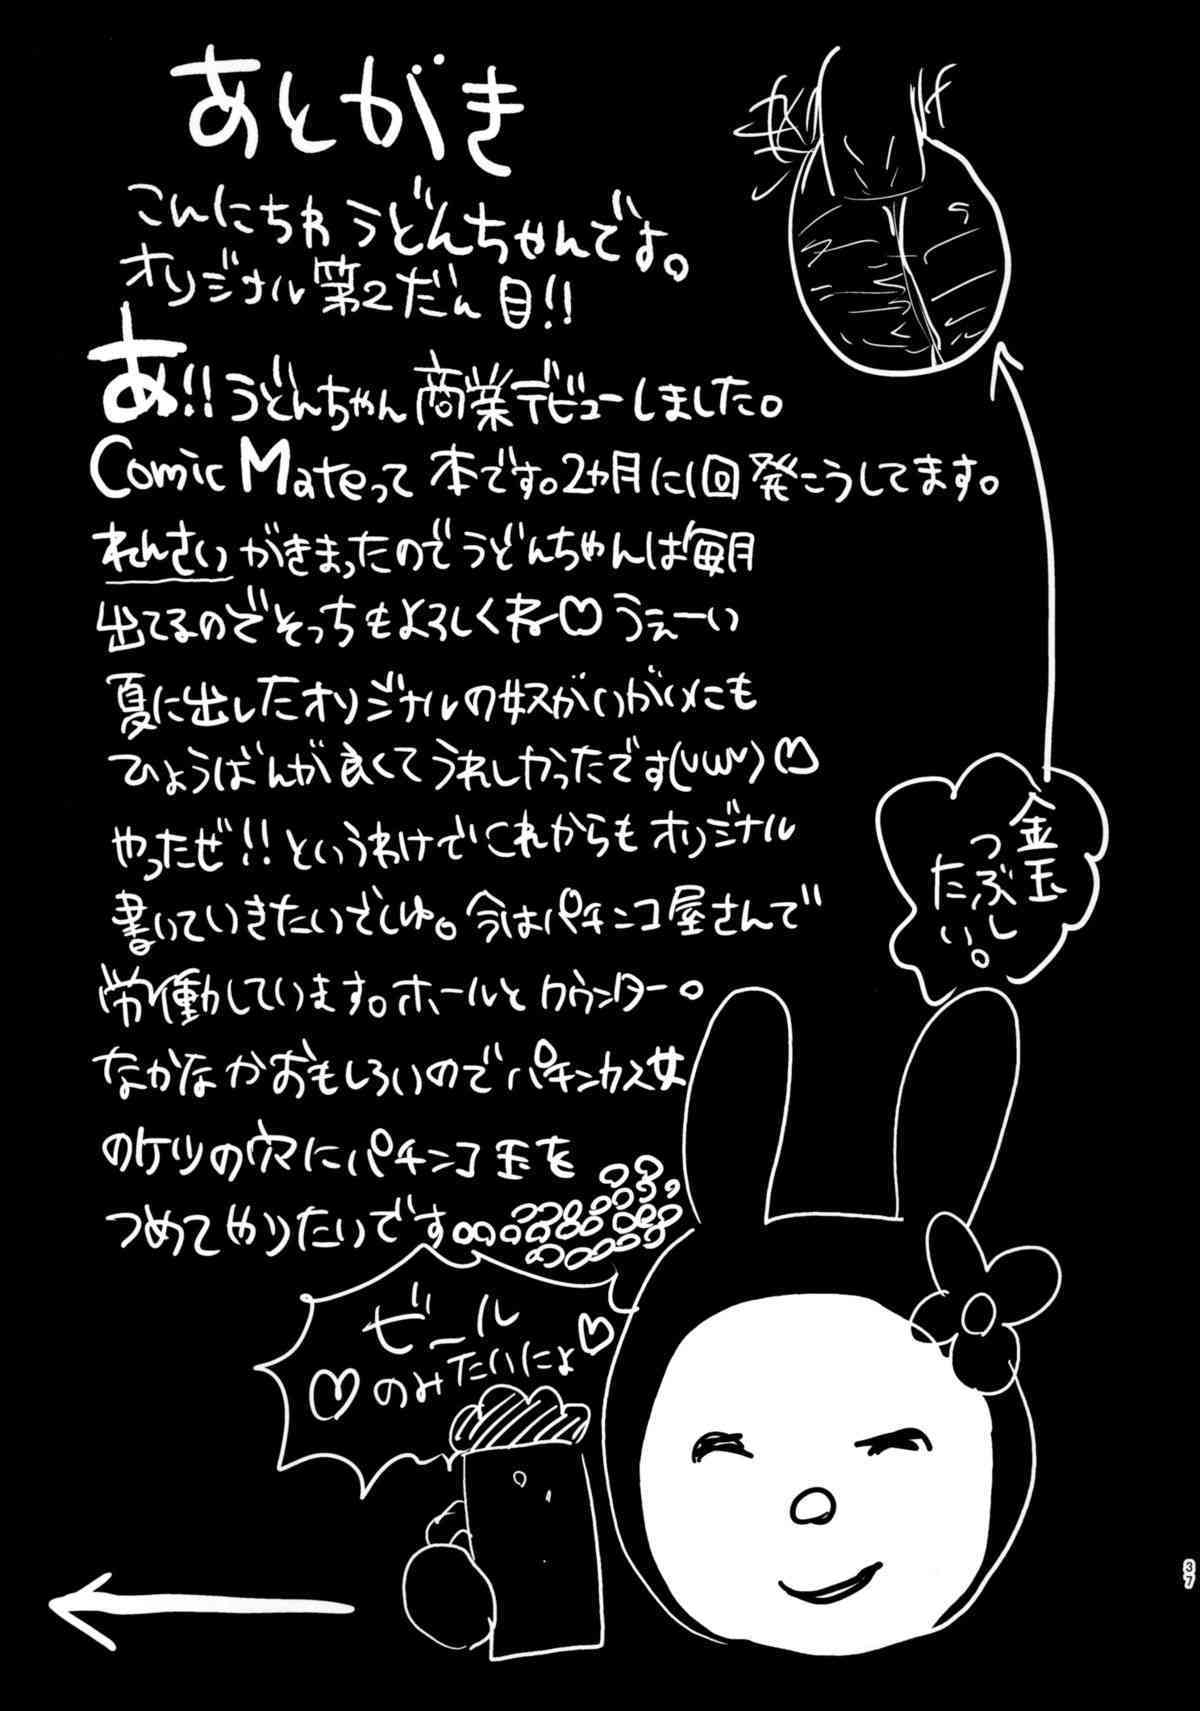 あとがき
こんにちわ うどんちゃんです。
オリジナル第2だん目!!
あ!! うどんちゃん商業デビューしました。
Comic Mateって本です。2ヶ月に1回発こうしてます。
れんさいがきまったのでうどんちゃんは毎月
出てるのでそっちもよろしくねー♡うぇーい
夏に出したオリジナルの奴がいがいにも
ひょうばんが良くてうれしかったです(UωU)♡
やったぜ!!というわけでこれからもオリジナル
書いていきたいでしゅ。今はパチンコ屋さんで
労働しています。ホールとカウンター。
なかなかおもしろいのでパチンカス女
のケツの穴にパチンコ玉を
つめてやりたいです。
金玉
つぶし
たい。
ビール
♡のみたいにょ♡
37